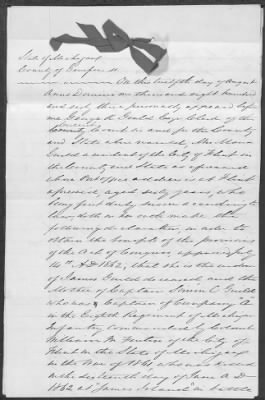 State of Michigan
County of Genesee ss.
On this twelfth day of August
Anno Domini one thousand eight hundred
and sixty three personally appeared before
me George R. Gould Esq. Clerk of the
Circuit
County Court in and for the County
and State above named, Mrs Mora
Guild a resident of the City of Flint in
the County and State as aforesaid
whose Post office address is at Flint
aforesaid, aged sixty years, who
being first duly sworn according to
law, doth on her oath make the
following declaration, in order to
obtain the benefit of the provisions
of the Act of Congress approved July
14th AD 1862, that she is the widow
of James Guild deceased and the
Mother of Captain Guild
who was a Captain of Company "A"
in the Eighth Regiment of Michigan
Infantry commanded by Colonel
William M. Fenton of the City of
Flint in the State of Michigan
in the War of 1861 who was killed
on the sixteenth day of June A.D.
1862 at "James Island" in battle